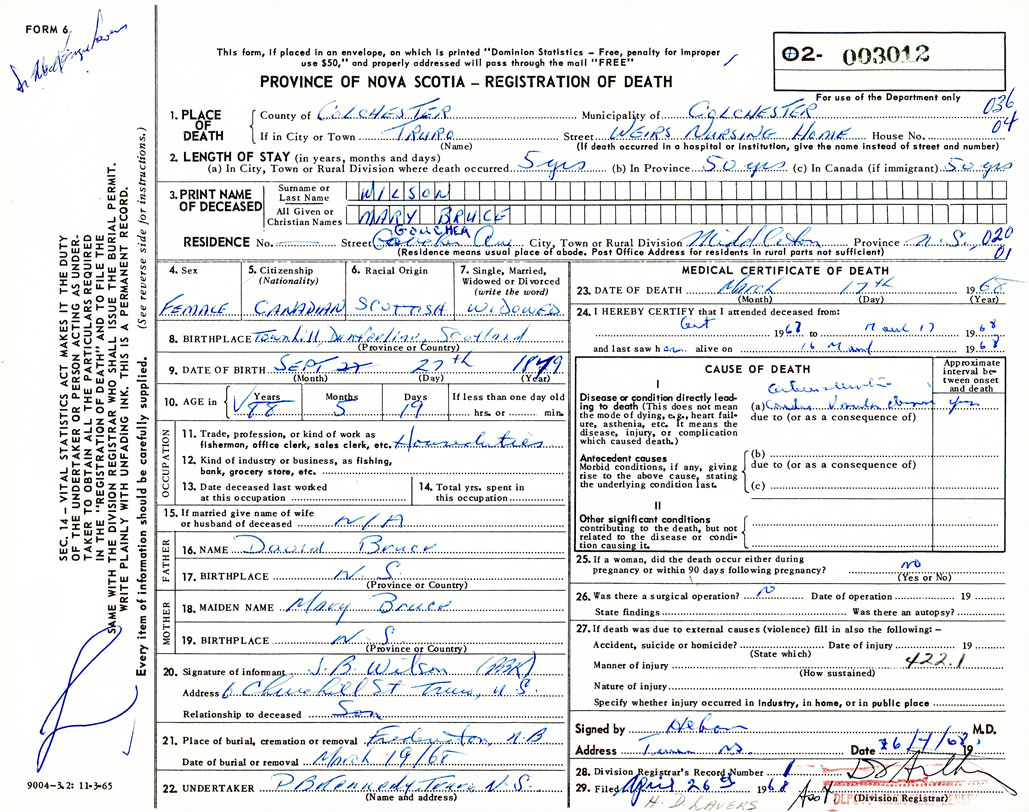 FORM 6
This form, if placed in an envelope, on which is printed "Dominion Statistics – Free, penalty for improper
use $50," and properly addressed will pass through the mail "FREE"
PROVINCE OF NOVA SCOTIA – REGISTRATION OF DEATH
02- 003012
For use of the Department only
036
04
1. PLACE OF DEATH
County of COLCHESTER Municipality of COLCHESTER
If in City or Town TRURO Street WEIRS NURSING HOME House No.
(Name) (If death occurred in a hospital or institution, give the name instead of street and number)
2. LENGTH OF STAY (in years, months and days)
(a) In City, Town or Rural Division where death occurred 5 yrs (b) In Province 50 yrs (c) In Canada (if immigrant) 50 yrs
3. PRINT NAME OF DECEASED
Surname or Last Name WILSON
All Given or Christian Names MARY BRUCE
GOUCHER
RESIDENCE No. Street Goucher Ave City, Town or Rural Division Middleton Province N.S. 020
01
(Residence means usual place of abode. Post Office Address for residents in rural parts not sufficient)
4. Sex FEMALE
5. Citizenship (Nationality) CANADIAN
6. Racial Origin SCOTTISH
7. Single, Married, Widowed or Divorced (write the word) WIDOWED
8. BIRTHPLACE Townhill, Dunfermline, Scotland
(Province or Country)
9. DATE OF BIRTH SEPT 27th 1879
(Month) (Day) (Year)
10. AGE in Years 88 Months 5 Days 19 If less than one day old hrs. or min.
OCCUPATION
11. Trade, profession, or kind of work as fisherman, office clerk, sales clerk, etc. Houseduties
12. Kind of industry or business, as fishing, bank, grocery store, etc.
13. Date deceased last worked at this occupation
14. Total yrs. spent in this occupation
15. If married give name of wife or husband of deceased N/A
FATHER
16. NAME David Bruce
17. BIRTHPLACE N.S.
(Province or Country)
MOTHER
18. MAIDEN NAME Mary Bruce
19. BIRTHPLACE N.S.
(Province or Country)
20. Signature of informant J.B. Wilson
Address 6 Churchill St Truro, N.S.
Relationship to deceased Son
21. Place of burial, cremation or removal Fredericton, N.B
Date of burial or removal March 19/68
22. UNDERTAKER P B Kennedy, Truro N.S.
(Name and address)
MEDICAL CERTIFICATE OF DEATH
23. DATE OF DEATH March 17th 1968
(Month) (Day) (Year)
24. I HEREBY CERTIFY that I attended deceased from:
1968 to March 17 1968
and last saw h alive on 16 March 1968
CAUSE OF DEATH
Approximate interval between onset and death
I
Disease or condition directly leading to death (This does not mean the mode of dying, e.g., heart failure, asthenia, etc. It means the disease, injury, or complication which caused death.)
(a) yes
due to (or as a consequence of)
Antecedent causes
Morbid conditions, if any, giving rise to the above cause, stating the underlying condition last.
(b)
due to (or as a consequence of)
(c)
II
Other significant conditions contributing to the death, but not related to the disease or condition causing it.
25. If a woman, did the death occur either during pregnancy or within 90 days following pregnancy? no
(Yes or No)
26. Was there a surgical operation? no Date of operation 19
State findings Was there an autopsy?
27. If death was due to external causes (violence) fill in also the following: –
Accident, suicide or homicide? Date of injury 19
(State which)
422.1
Manner of injury
(How sustained)
Nature of injury
Specify whether injury occurred in Industry, in home, or in public place
Signed by M.D.
Address Truro N.S. Date 26/4/68 19
28. Division Registrar's Record Number 1
29. Filed April 26th 1968
(Division Registrar)
H. D LAVERS
SEC. 14 – VITAL STATISTICS ACT MAKES IT THE DUTY
OF THE UNDERTAKER OR PERSON ACTING AS UNDER-
TAKER TO OBTAIN ALL THE PARTICULARS REQUIRED
IN THE "REGISTRATION OF DEATH" AND TO FILE THE
SAME WITH THE DIVISION REGISTRAR WHO SHALL ISSUE THE BURIAL PERMIT.
WRITE PLAINLY WITH UNFADING INK. THIS IS A PERMANENT RECORD.
Every item of information should be carefully supplied. (See reverse side for instructions.)
9004-3.2: 11-3-65